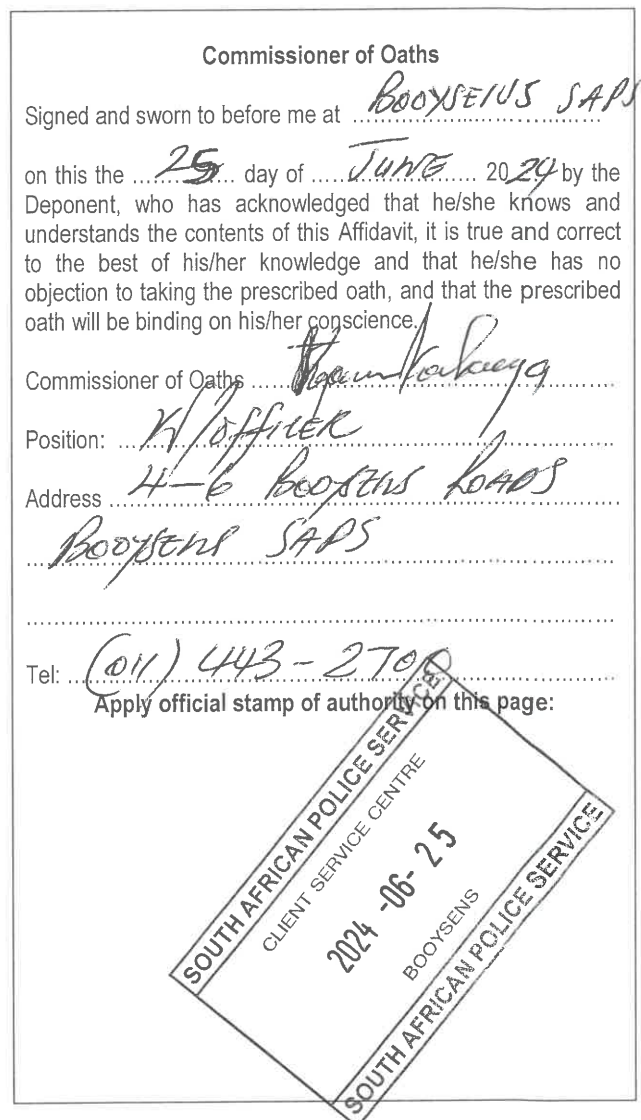 Commissioner of Oaths
Signed and sworn to before me at BOOYSENS SAPS
on this the 25 day of JUNE 2024 by the
Deponent, who has acknowledged that he/she knows and
understands the contents of this Affidavit, it is true and correct
to the best of his/her knowledge and that he/she has no
objection to taking the prescribed oath, and that the prescribed
oath will be binding on his/her conscience.
Commissioner of Oaths
Position: W/OFFICER
Address 4-6 BOOYSENS ROADS
BOOYSENS SAPS
Tel: (011) 443-2700
Apply official stamp of authority on this page:
SOUTH AFRICAN POLICE SERVICE
CLIENT SERVICE CENTRE
2024 -06- 25
BOOYSENS
SOUTH AFRICAN POLICE SERVICE